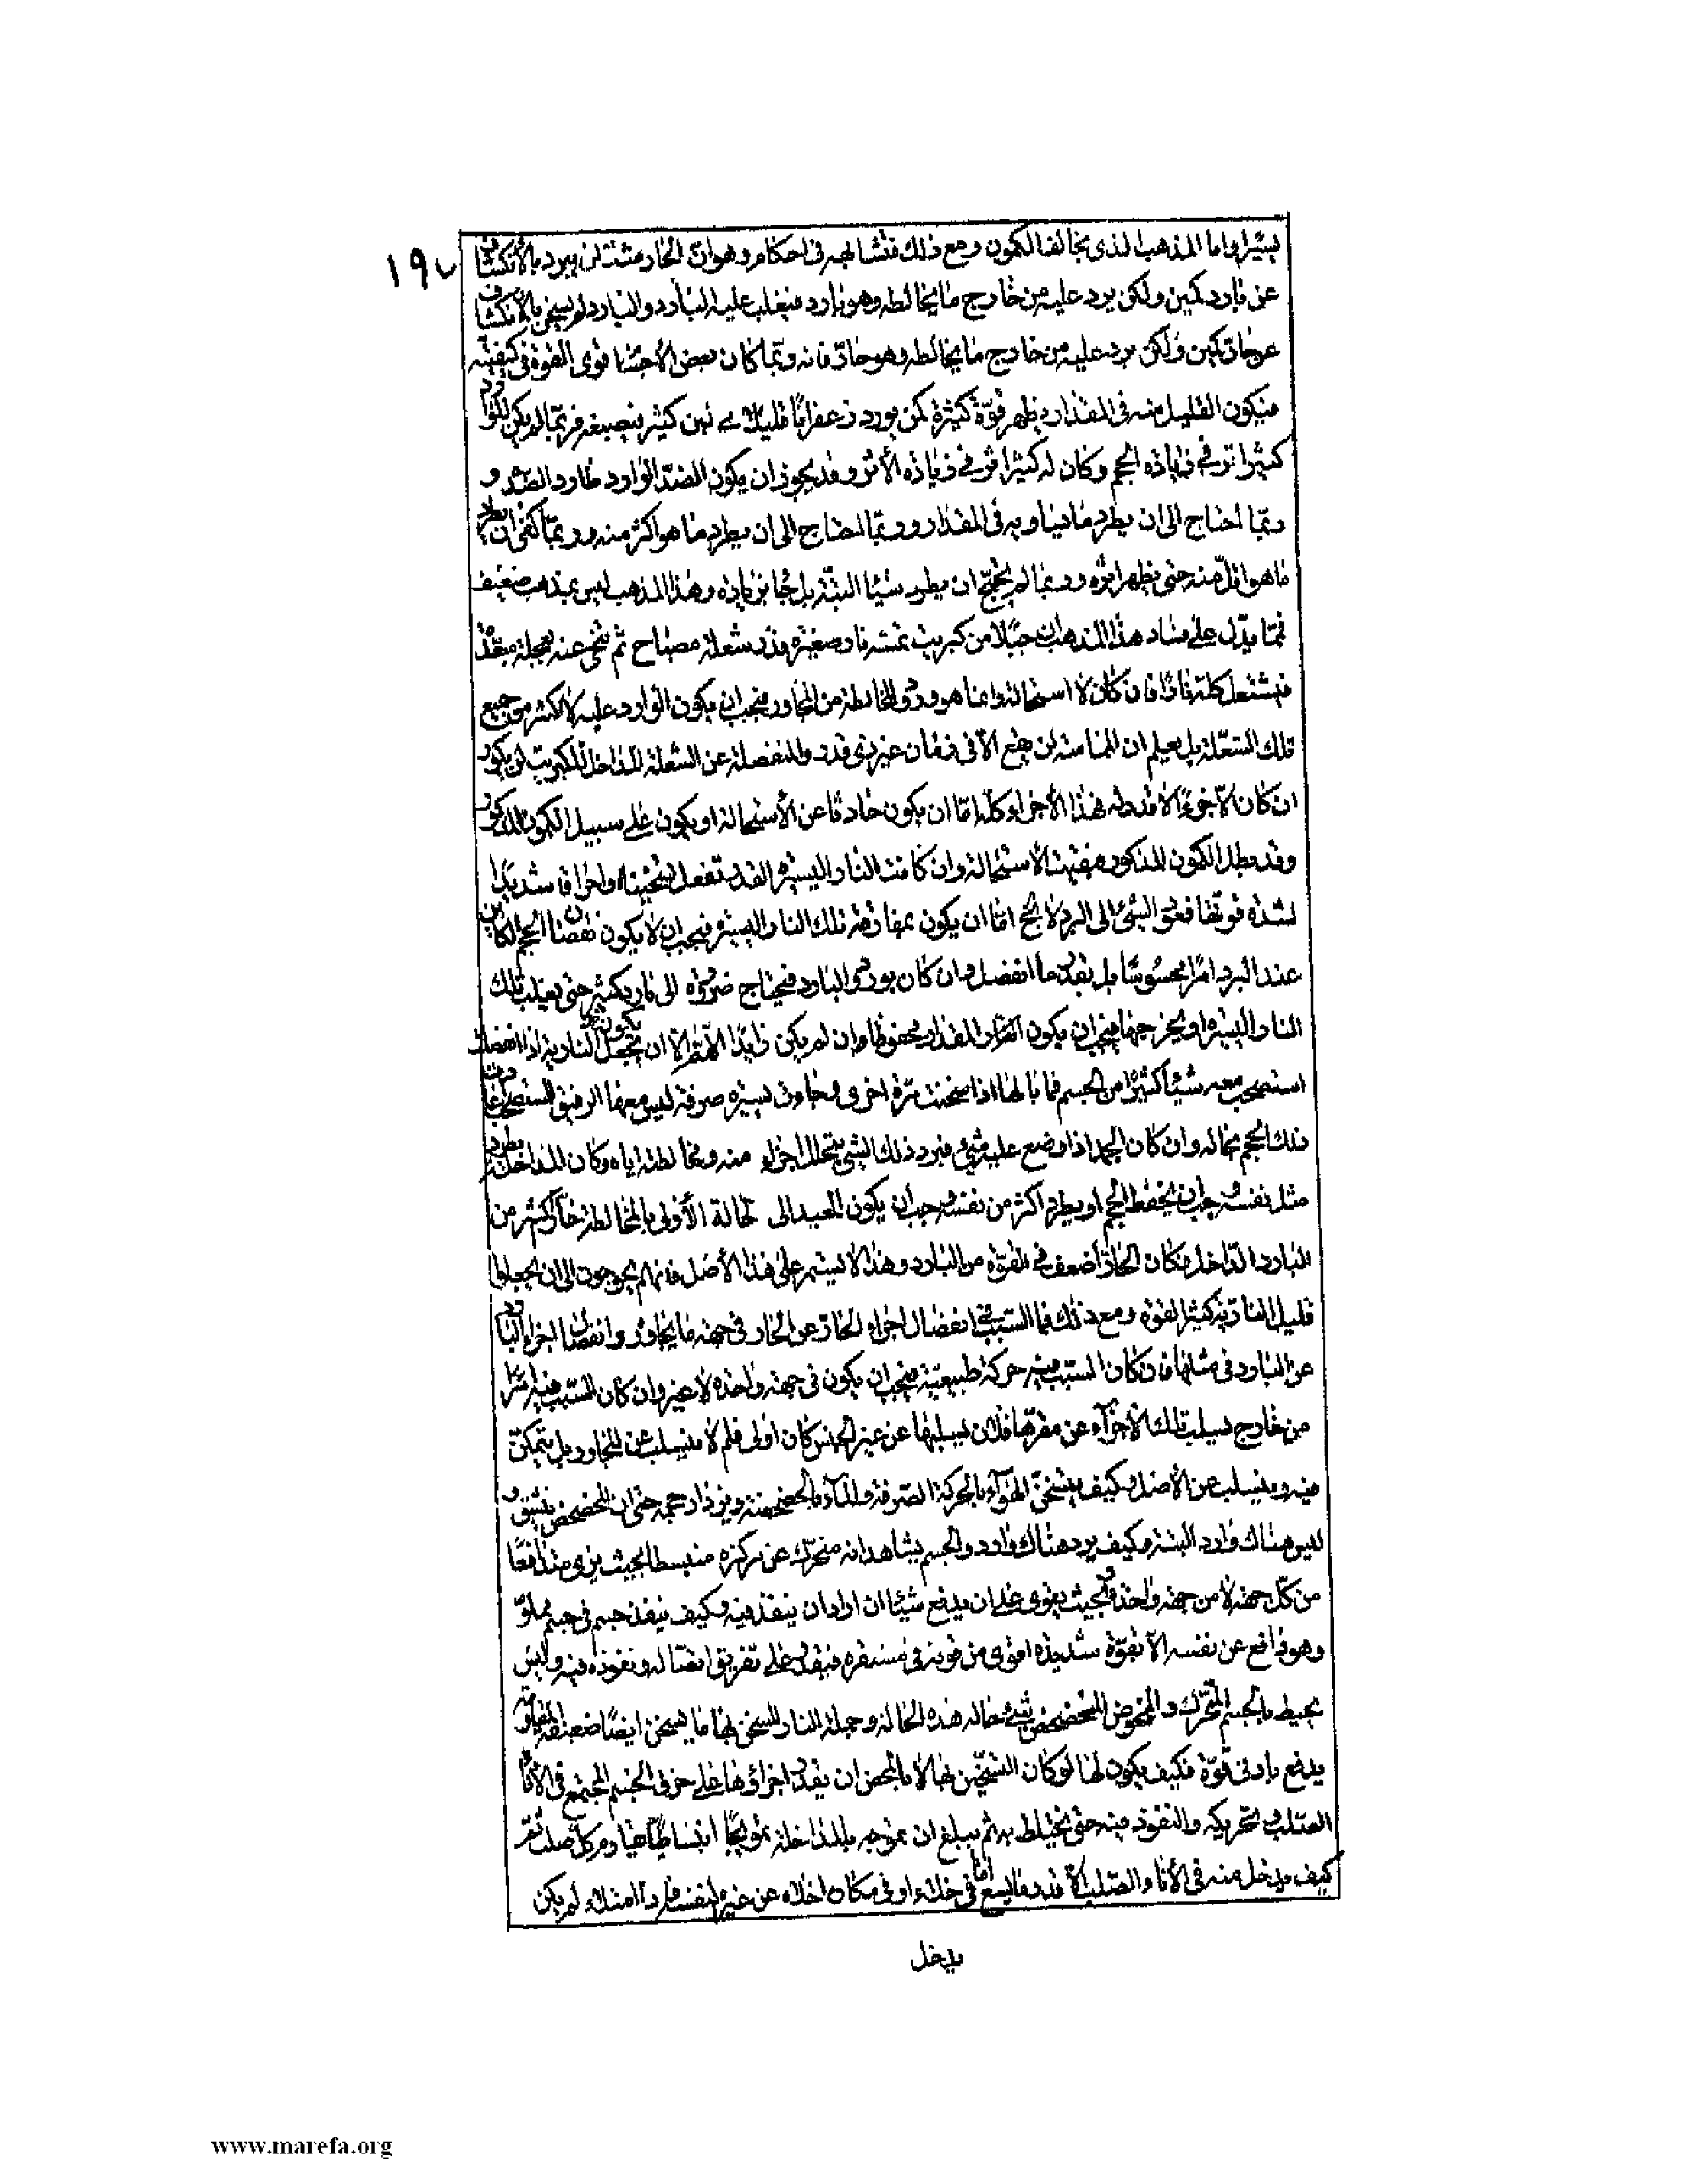 ١٩٧
يسيرا واما المذهب الذى يخالف الكمون ومع ذلك يتشابهه فى احكام وهو ان الحار مثلا لن يبرد بالانكشاف
عن بارد كمين ولكن يرد عليه من خارج ما يخالطه وهو بارد فيغلب عليه البارد والبارد لم يسخن بالانكشاف
عن حار كمين ولكن يرد عليه من خارج ما يخالطه وهو حار فانه ربما كان بعض الأجسام قوى القوة فى كيفيته
فيكون القليل منه فى المقدار يظهر قوة كثيرة كمن يورد زعفرانا قليلا على لبن كثير فيصبغه فربما لم يكن للوارد
كثير اثر فى زيادة الحجم وكان له كثير اثر فى زيادة الأثر وقد يجوز ان يكون الضد الوارد طارد الضد و
ربما احتاج الى ان يطرد ما يساويه فى المقدار وربما احتاج الى ان يطرد ما هو اكثر منه وربما كفى ان يطرد
ما هو اقل منه حتى يظهر اثره وربما لم يحتج ان يطرد شيئا البتة بل جاء بزيادة وهذا المذهب ليس بمذهب ضعيف
فمما يدل على فساد هذا المذهب ان جبلا من كبريت تمسه نار صغيرة قدر شعلة مصباح ثم تنحى عنه بعجلة مبعدة
فيشتعل كله نارا فان كان لا استحالة وانما هو ورود المخالطة من المجاور فيجب ان يكون الوارد عليه لا اكثر من جميع
تلك الشعلة بل يعلم ان المماسة لن تقع الا فى زمان غير ذى قدر والمنفصلة عن الشعلة المداخل للكبريت لن يكون
ان كان الا جزءا لا قدر له فهذا الأجزاء كلها اما ان يكون حادثا عن الأستحالة او يكون على سبيل الكمون المذكور
وقد بطل الكمون المذكور فبقيت الاستحالة وان كانت النار اليسيرة القدر تفعل تسخينا واحراقا شديدا
لشدة قوتها فعود الشئ الى البرد لا يخ اما ان يكون بمفارقة تلك النار اليسيرة فيجب ان لا يكون نقصان الحجم الكاين
عند البرد امرا محسوسا بل بقدر ما انفصل وان كان بورود البارد فيحتاج ضرورة الى بارد كثير حتى يغلب تلك
النار اليسيرة او يخرجها فيجب ان يكون المقدار محفوظا وان لم يكن زايدا اللهم الا ان تكون تجعل النارية اذا انفصلت
استصحب معه شيئا كثيرا من الجسم فما بالها اذا سخنت مرة اخرى وجاورت يسيرة صرفة ليس معها الرفيق المستصحب عادت
ذلك الحجم بحاله وان كان الجمد اذا وضع عليه شئ فبرد ذلك الشئ بتحلل اجزاء منه ومخالطته اياه وكان المداخلة يطرد
مثل نفسه وجب ان يحفظ الحجم او يطرد اكثر من نفسه وجب ان يكون المعيد الى الحالة الأولى بالمخالطة حارا اكثر من
البارد الداخل فكان الحار اضعف فى القوة من البارد وهذا لا يستمر على هذا الأصل فانهم يحوجون الى ان يجعلوا
قليل النارية كثير القوة ومع ذلك فما السبب فى انفصال اجزاء الحار عن الحار فى جهة ما يجاور وانفصال اجزاء البارد
عن البارد فى مثلها فان كان السبب فيه حركة طبيعية فيجب ان يكون فى جهة واحدة لا غير وان كان السبب فيه امرا
من خارج يسلب تلك الأجزاء عن مقرها فلان يسلبها عن غير الجنس كان اولى فلم لا ينسلب عن المجاور بل يتمكن
فيه وينسلب عن الأصل وكيف يتسخن الهواء بالحركة الصرفة والماء بالخضخضة ويزداد حجمه حتى ان المخضخض ينشق و
ليس هناك وارد البتة وكيف يرد هناك وارد والجسم يشاهد انه متحرك عن مركزه منبسطا بحيث يرى متدافعا
من كل جهة لا من جهة واحدة وبحيث يقوى على ان يدفع شيئا ان اراد ان ينفذ فيه وكيف ينفذ جسم فى جسم مملو
وهو دافع عن نفسه الا بقوة شديدة اقوى من قوته فى مستقره فيقدر على تفريق اتصاله ونفوذه فيه وليس
يحيط بالجسم المتحرك والمخوض المخضخض شئ حاله هذه الحالة وجملة النار المسخن بها ما يسخن ايضا ضعيفة المقاومة
يدفع بادنى قوة فكيف يكون لها لو كان التسخين بها لا بالمحض ان يقدر اجزاؤها على خرق الجسم المجتمع فى الأناء
الصلب وتحريكه والنفوذ فيه حتى يختلط به ثم يبلغ ان يموجه بالمداخلة تمويجا انبساطيا حيا وميكا صلب ثم
كيف يدخل منه فى الأناء والصلب الا قدر ما يسع اما فى خلاء او فى مكان اخلاه عن غيره لنفسه فاذا امتلاء لم يكن
يدخل
www.marefa.org